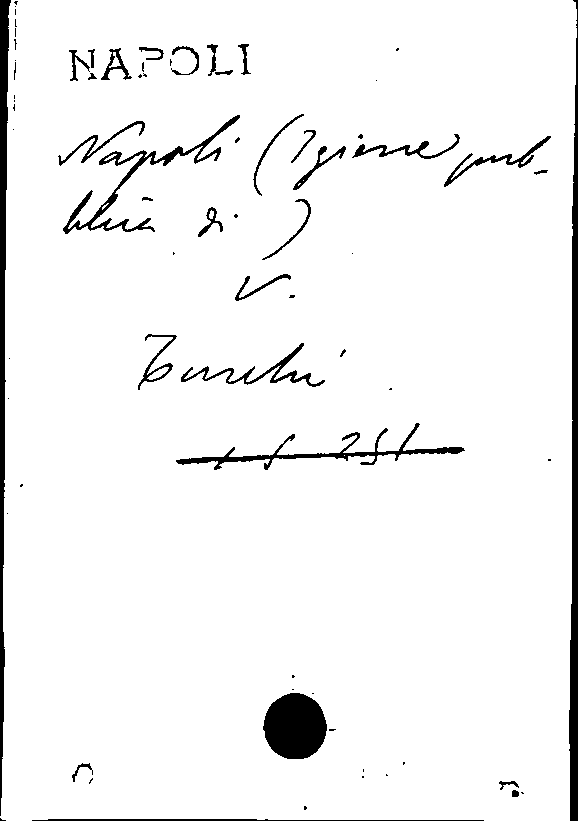 NAPOLI
Napoli (Igiene pub-
blica di)
V.
Turchi